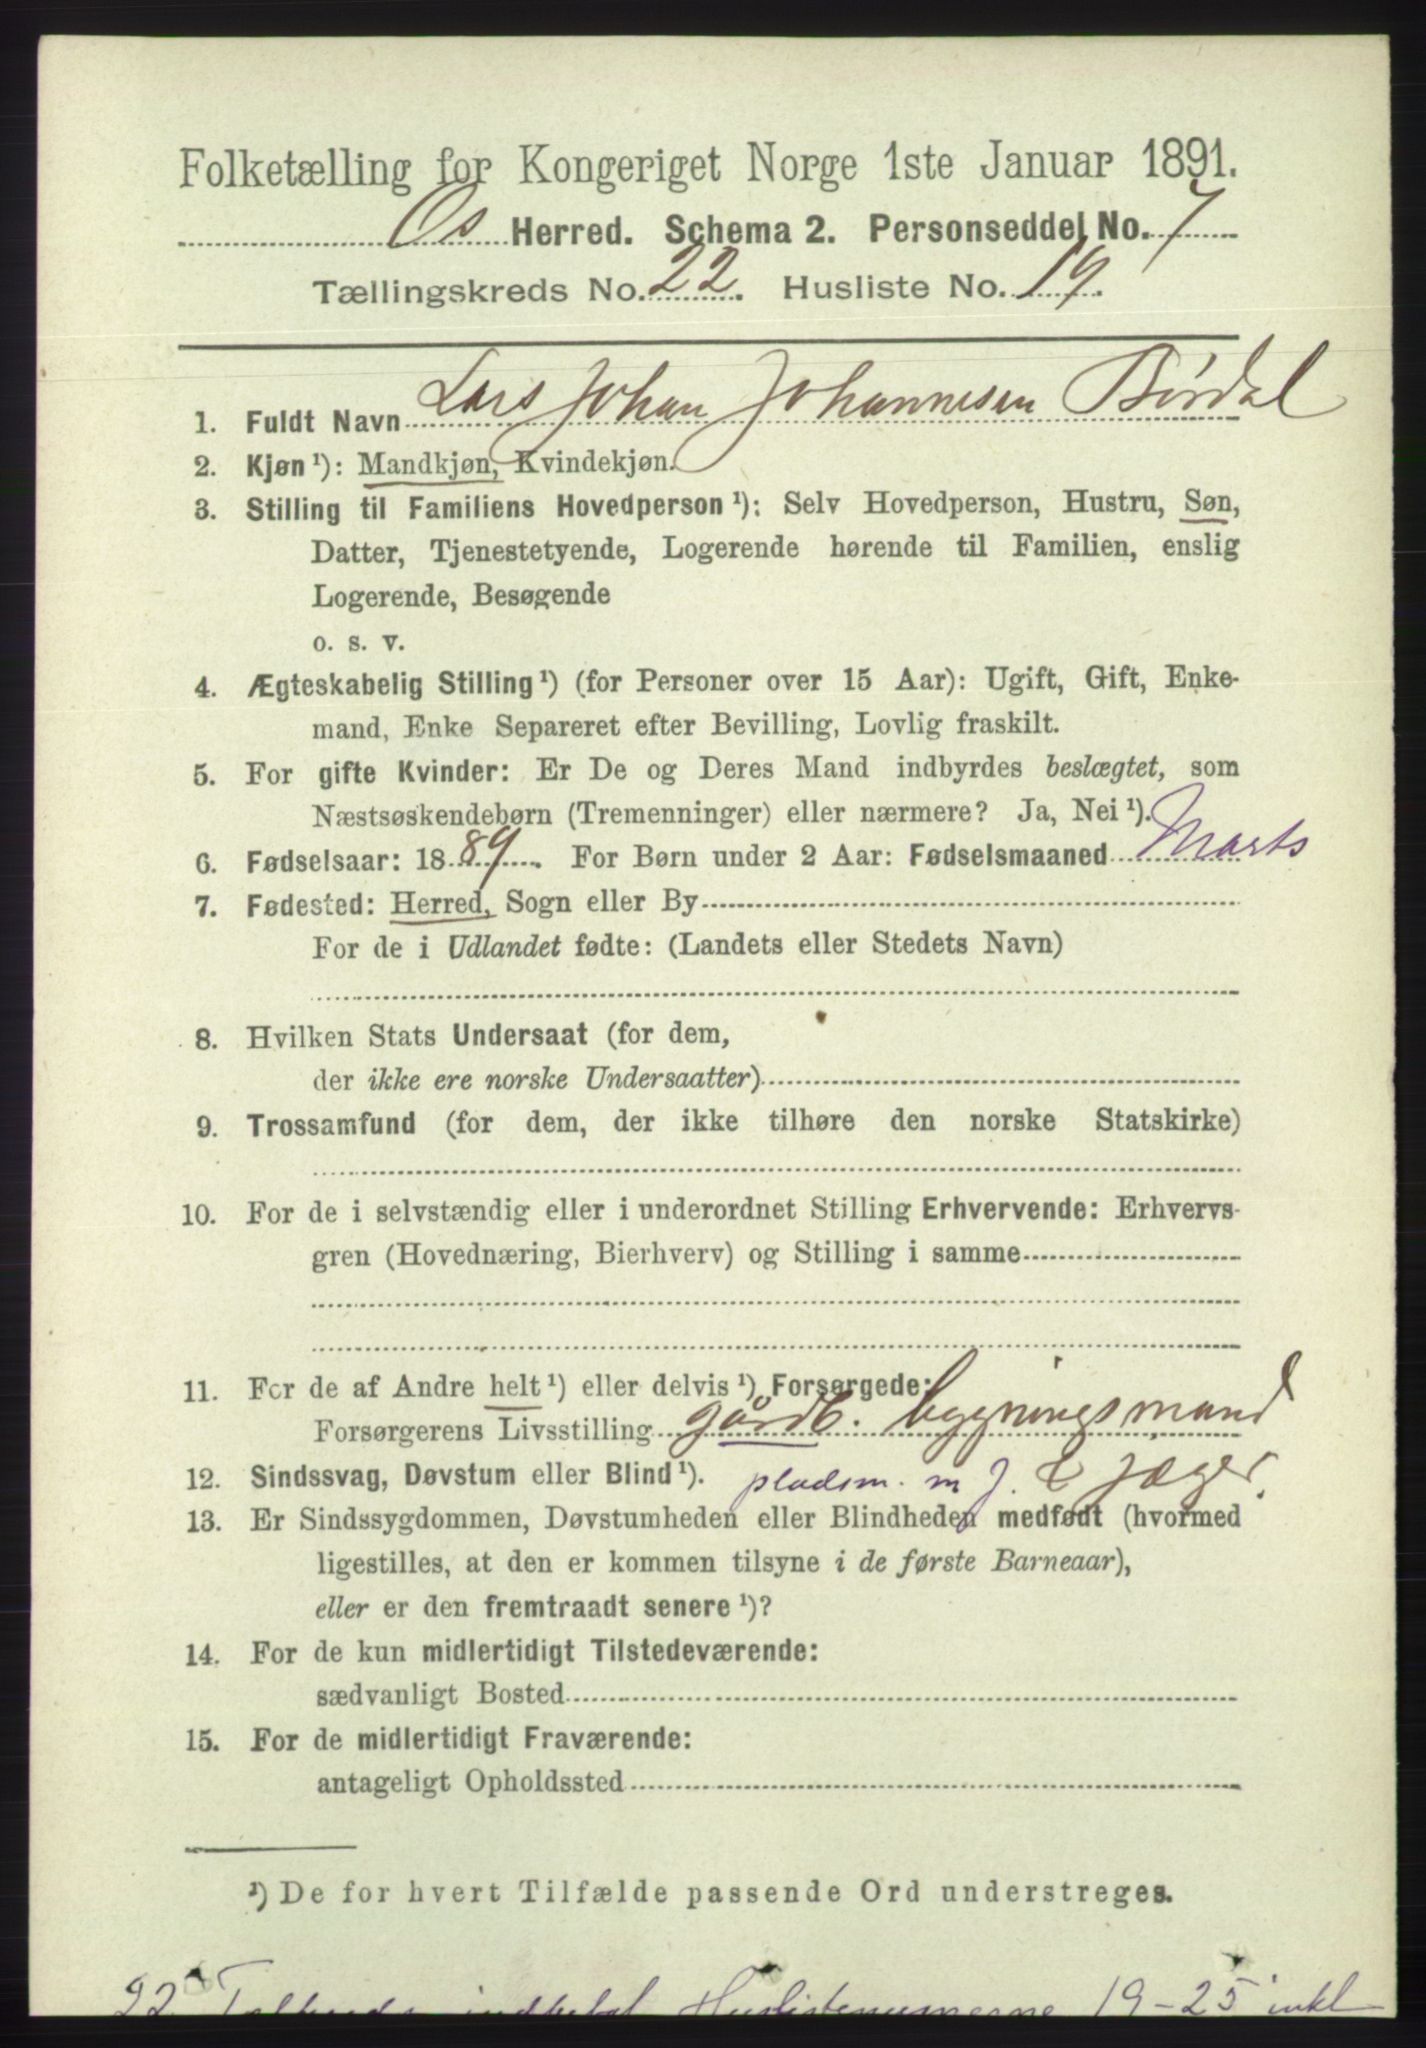 Folketælling for Kongeriget Norge 1ste Januar 1891.
Os Herred. Schema 2. Personseddel No. 7
Tællingskreds No. 22. Husliste No. 19.
1. Fuldt Navn Lars Johan Johannesen Børdal
2. Kjøn¹): Mandkjøn, Kvindekjøn.
3. Stilling til Familiens Hovedperson¹): Selv Hovedperson, Hustru, Søn,
Datter, Tjenestetyende, Logerende hørende til Familien, enslig
Logerende, Besøgende
o. s. v.
4. Ægteskabelig Stilling¹) (for Personer over 15 Aar): Ugift, Gift, Enke-
mand, Enke Separeret efter Bevilling, Lovlig fraskilt.
5. For gifte Kvinder: Er De og Deres Mand indbyrdes beslægtet, som
Næstsøskendebørn (Tremenninger) eller nærmere? Ja, Nei¹).
6. Fødselsaar: 1889. For Børn under 2 Aar: Fødselsmaaned Marts
7. Fødested: Herred, Sogn eller By
For de i Udlandet fødte: (Landets eller Stedets Navn)
8. Hvilken Stats Undersaat (for dem,
der ikke ere norske Undersaatter)
9. Trossamfund (for dem, der ikke tilhøre den norske Statskirke)
10. For de i selvstændig eller i underordnet Stilling Erhvervende: Erhvervs-
gren (Hovednæring, Bierhverv) og Stilling i samme
11. For de af Andre helt¹) eller delvis¹) Forsørgede:
Forsørgerens Livsstilling gårdb. bygningsmand
12. Sindssvag, Døvstum eller Blind¹). pladsm. m J. & Jæger.
13. Er Sindssygdommen, Døvstumheden eller Blindheden medfødt (hvormed
ligestilles, at den er kommen tilsyne i de første Barneaar),
eller er den fremtraadt senere¹)?
14. For de kun midlertidigt Tilstedeværende:
sædvanligt Bosted
15. For de midlertidigt Fraværende:
antageligt Opholdssted
¹) De for hvert Tilfælde passende Ord understreges.
22 Tællkreds indbefat Huslistenumerne 19-25 inkl